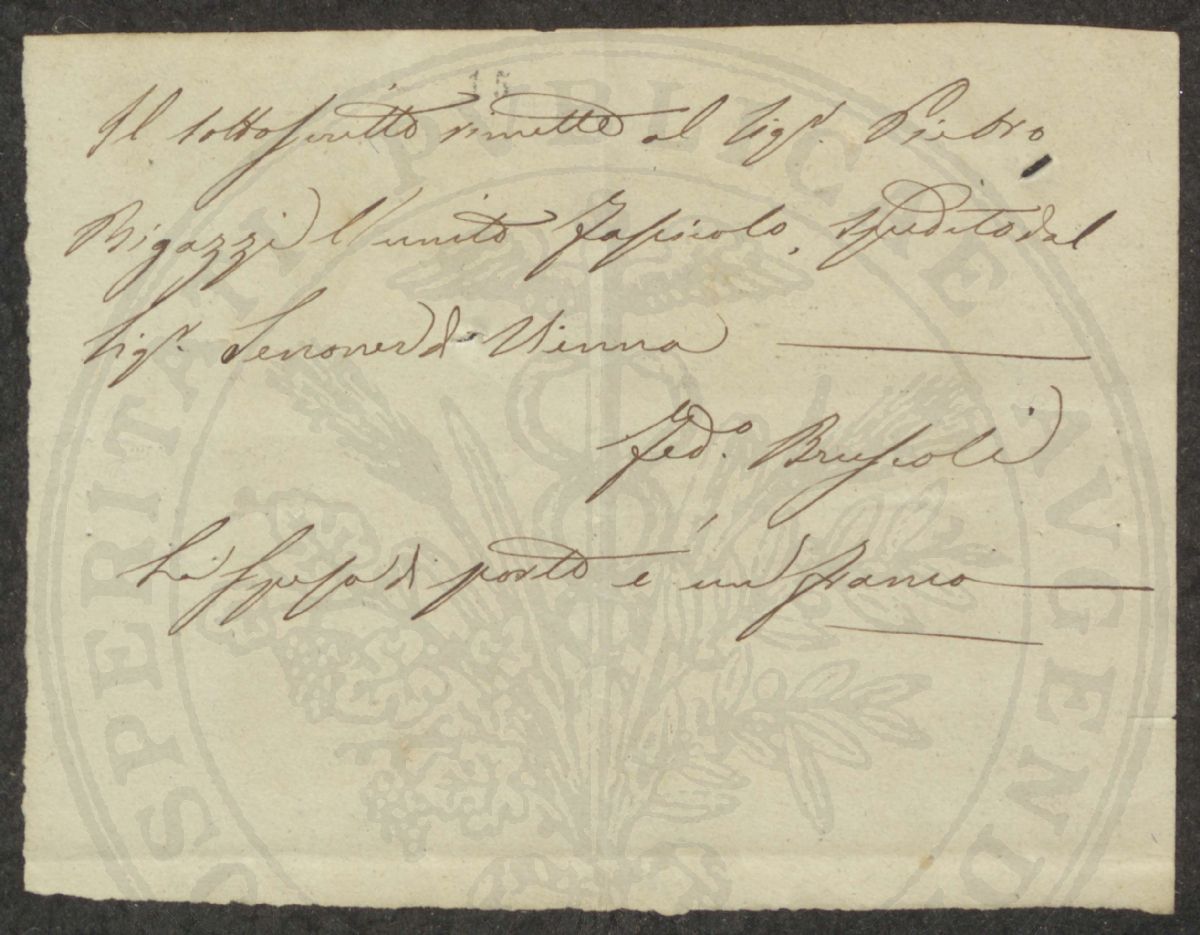 15
Il sottoscritto rimette al Sig.r Pietro
Bigazzi l'unito Fascicolo, spedito dal
Sig.r Senoner di Vienna
Fed.o Bruscoli
La spesa di porto è un franco
PROSPERITATI PVBLICAE AVGENDAE